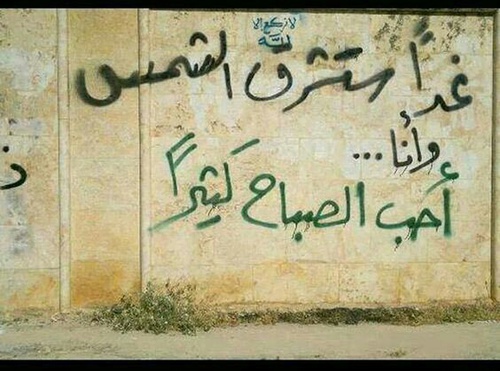 لا نركع إلا
لله
غداً ستشرق الشمس
وأنا...
أحب الصباح كثيراً